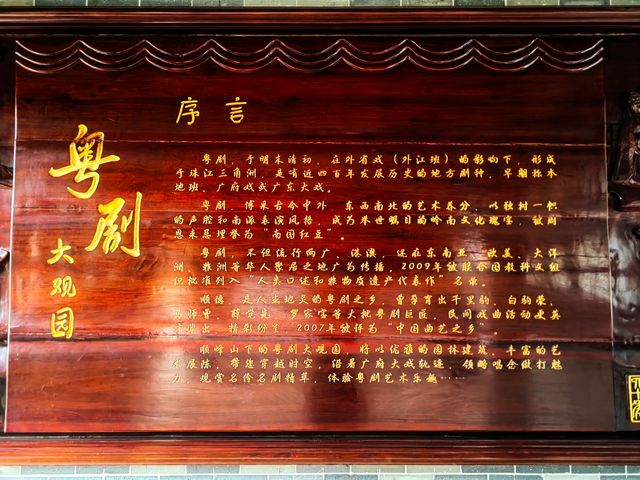 粤剧
大观园
序言
粤剧，于明末清初，在外省戏（外江班）的影响下，形成
于珠江三角洲，是有近四百年发展历史的地方剧种，早期称本
地班、广府戏或广东大戏。
粤剧，博采古今中外、东西南北的艺术养分，以独树一帜
的声腔和南派表演风格，成为举世瞩目的岭南文化瑰宝，被周
恩来总理誉为“南国红豆”。
粤剧，不但流行两广、港澳，还在东南亚、欧美、大洋
洲、非洲等华人聚居之地广为传播，2009年被联合国教科文组
织批准列入“人类口述和非物质遗产代表作”名录。
顺德，是人杰地灵的粤剧之乡，曾孕育出千里驹、白驹荣、
马师曾、薛觉先、罗家宝等大批粤剧巨匠，民间戏曲活动
出，精彩纷呈，2007年被评为“中国曲艺之乡”。
顺峰山下的粤剧大观园，将以优雅的园林建筑，丰富的艺
术展陈，带您穿越时空，沿着广府大戏轨迹，领略唱念做打魅
力，观赏名伶名剧精萃，体验粤剧艺术乐趣……